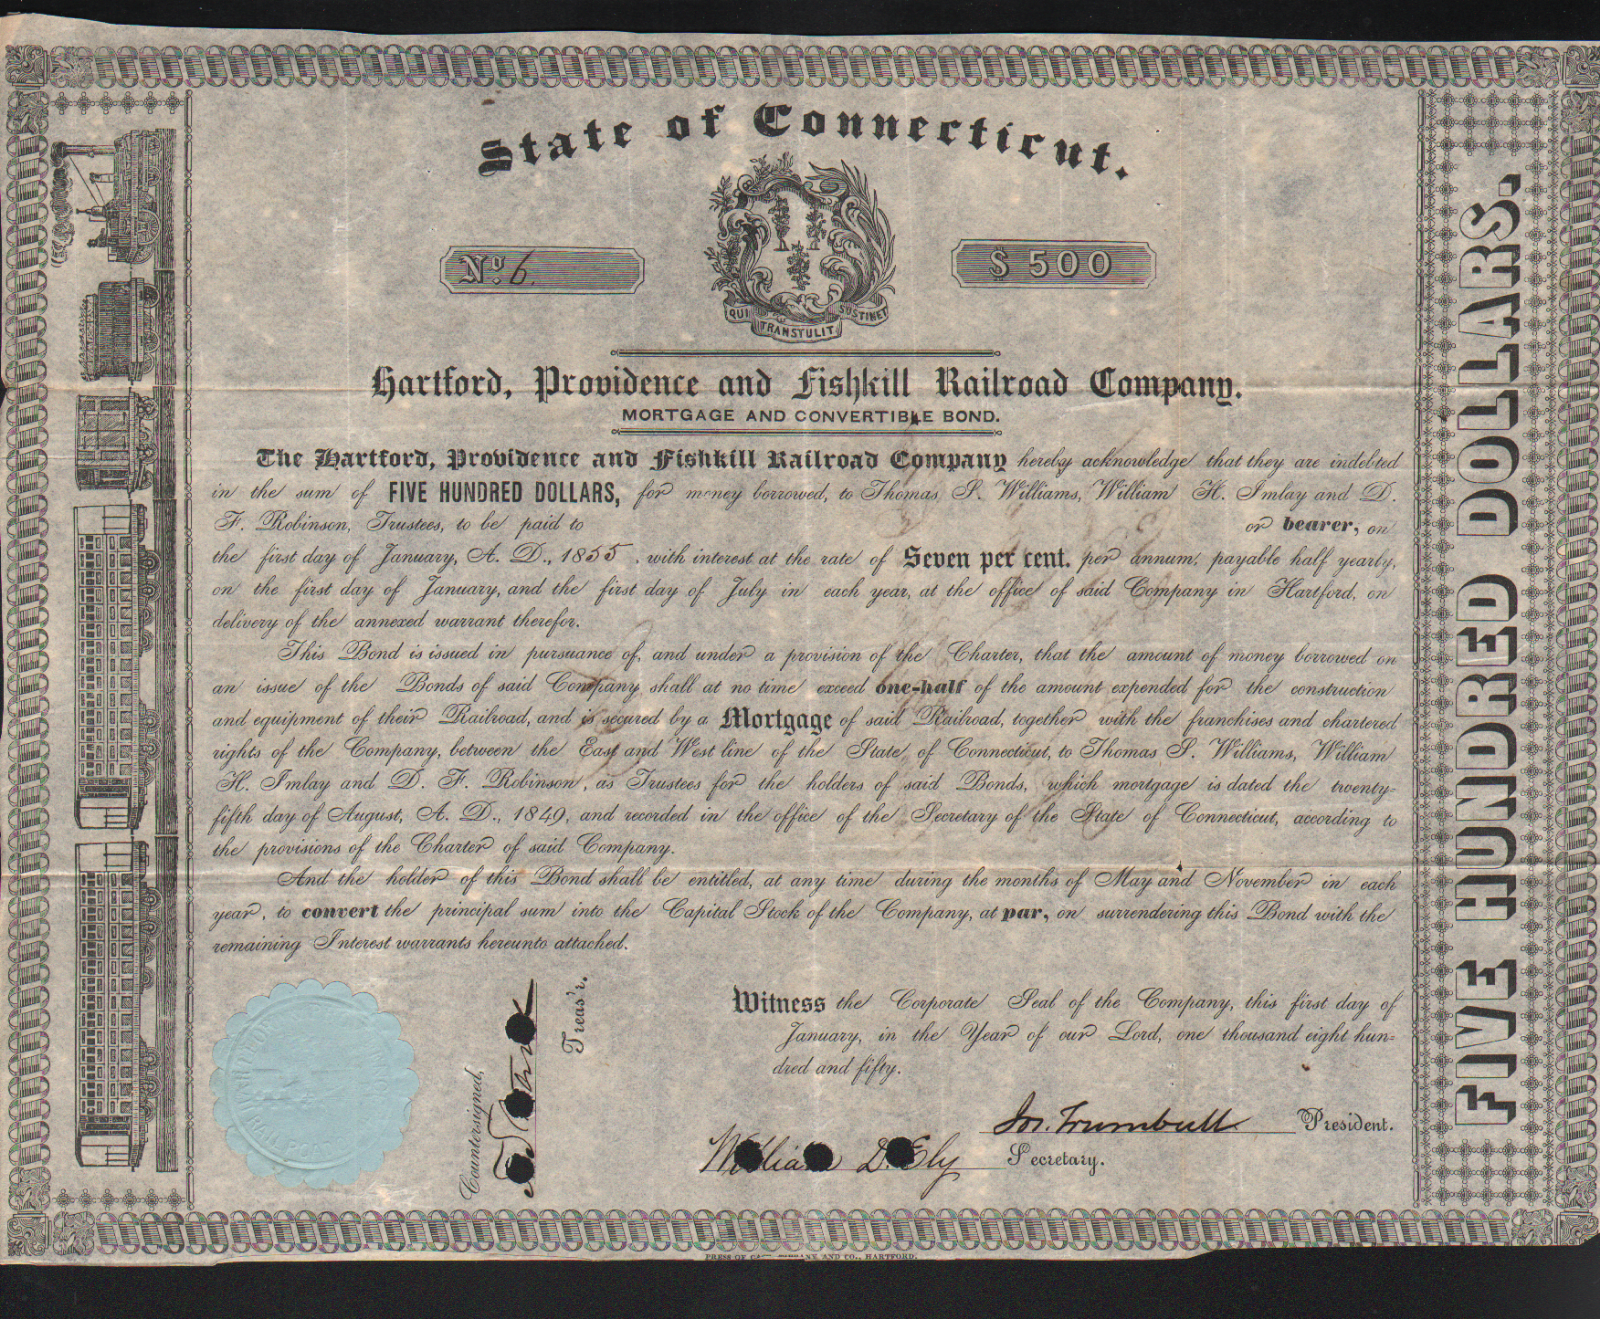 State of Connecticut.
No. 6.
$ 500
QUI TRANSTULIT SUSTINET
Hartford, Providence and Fishkill Railroad Company.
MORTGAGE AND CONVERTIBLE BOND.
The Hartford, Providence and Fishkill Railroad Company hereby acknowledge that they are indebted
in the sum of FIVE HUNDRED DOLLARS, for money borrowed, to Thomas S. Williams, William H. Imlay and D.
F. Robinson, Trustees, to be paid to or bearer, on
the first day of January, A. D., 1855, with interest at the rate of Seven per cent. per annum, payable half yearly,
on the first day of January, and the first day of July in each year, at the office of said Company in Hartford, on
delivery of the annexed warrant therefor.
This Bond is issued in pursuance of, and under a provision of the Charter, that the amount of money borrowed on
an issue of the Bonds of said Company, shall at no time exceed one-half of the amount expended for the construction
and equipment of their Railroad, and is secured by a Mortgage of said Railroad, together with the franchises and chartered
rights of the Company, between the East and West line of the State of Connecticut, to Thomas S. Williams, William
H. Imlay and D. F. Robinson, as Trustees for the holders of said Bonds, which mortgage is dated the twenty-
fifth day of August, A. D., 1849, and recorded in the office of the Secretary of the State of Connecticut, according to
the provisions of the Charter of said Company.
And the holder of this Bond shall be entitled, at any time during the months of May and November in each
year, to convert the principal sum into the Capital Stock of the Company, at par, on surrendering this Bond with the
remaining Interest warrants hereunto attached.
Witness the Corporate Seal of the Company, this first day of
January, in the Year of our Lord, one thousand eight hun-
dred and fifty.
Jos. Trumbull President.
William D. Ely Secretary.
Countersigned,
Treas'r.
FIVE HUNDRED DOLLARS.
PRESS OF AND CO., HARTFORD.